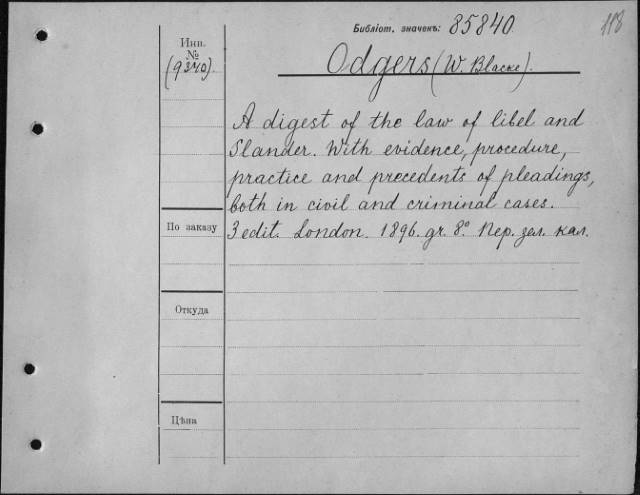 118
Библіот. значекъ: 85840.
Инв. №
(9340).
Odgers (W. Blacke).
A digest of the law of libel and
Slander. With evidence, procedure,
practice and precedents of pleadings,
both in civil and criminal cases.
3 edit. London. 1896. gr. 8º. Пер. зел. кал.
По заказу
Откуда
Цѣна